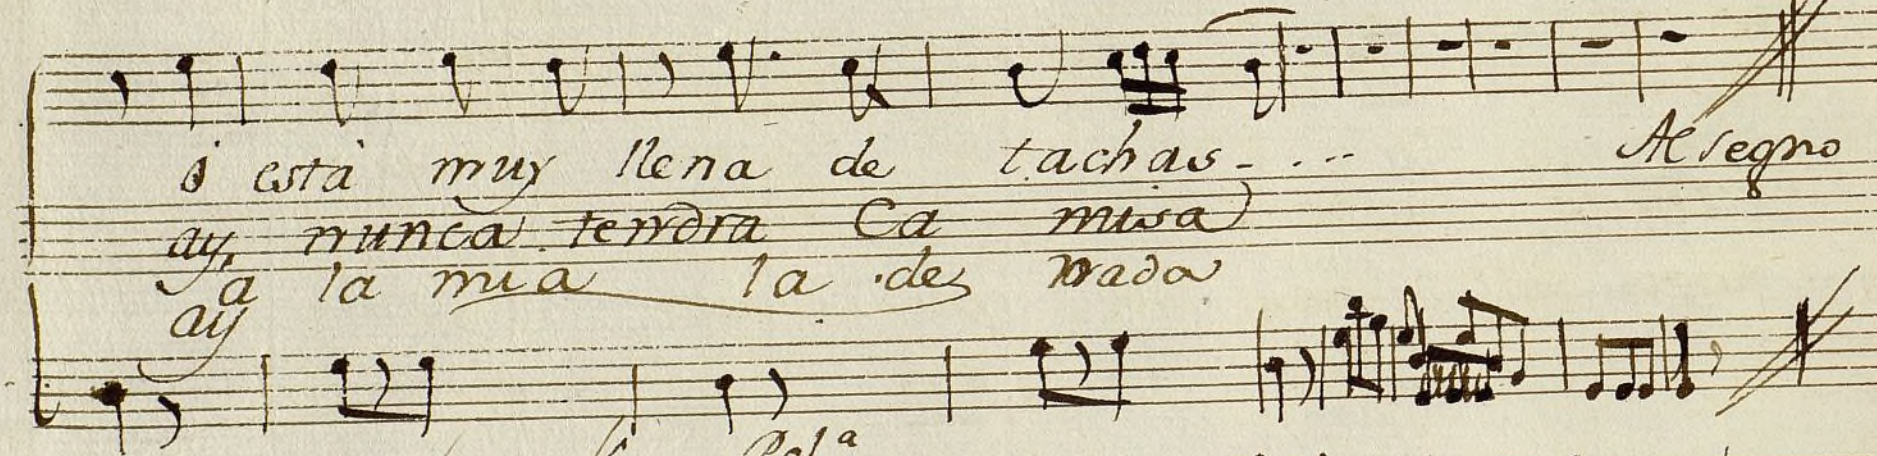 está muy llena de tachas - . . - - Al segno
ay, nunca tendra Ca misa
a la mia la de nada
ay